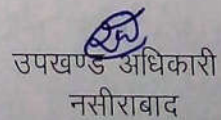 उपखण्ड अधिकारी
नसीराबाद